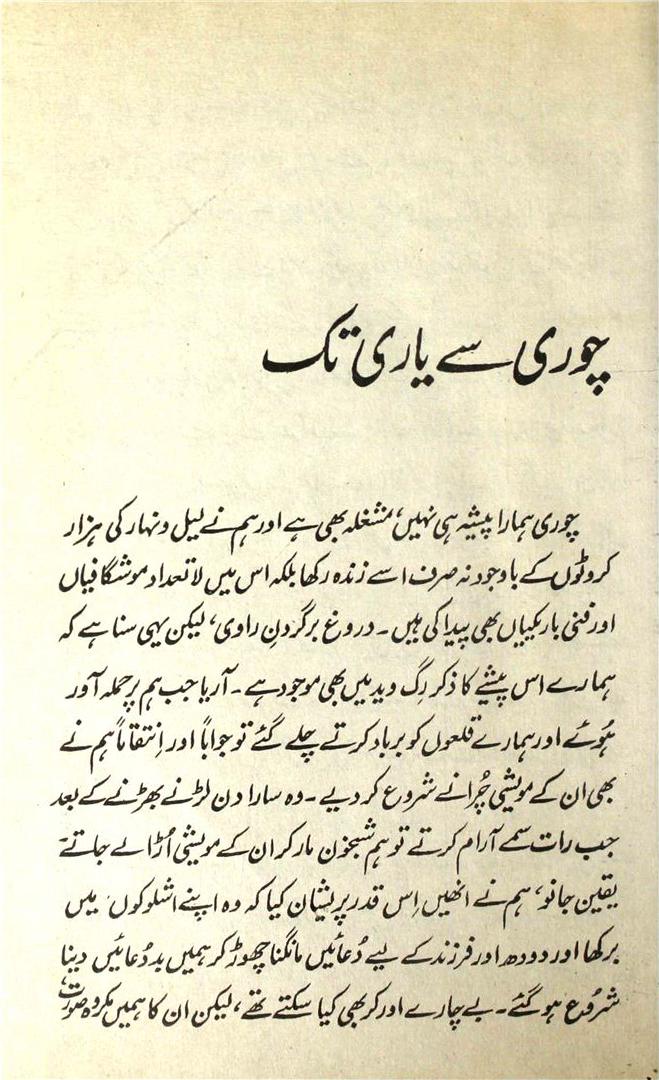 چوری سے یاری تک
چوری ہمارا پیشہ ہی نہیں، مشغلہ بھی ہے اور ہم نے لیل و نہار کی ہزار
کروٹوں کے باوجود نہ صرف اسے زندہ رکھا بلکہ اس میں لاتعداد موشگافیاں
اور فنی باریکیاں بھی پیدا کی ہیں۔ دروغ برگردنِ راوی، لیکن یہی سنا ہے کہ
ہمارے اس پیشے کا ذکر رِگ وید میں بھی موجود ہے۔ آریا جب ہم پر حملہ آور
ہُوئے اور ہمارے قلعوں کو برباد کرتے چلے گئے تو جواباً اور اِنتقاماً ہم نے
بھی ان کے مویشی چُرانے شروع کر دیے۔ وہ سارا دن لڑنے بھڑنے کے بعد
جب رات سمے آرام کرتے تو ہم شبخون مار کر ان کے مویشی اُڑا لے جاتے۔
یقین جانو، ہم نے انھیں اِس قدر پریشان کیا کہ وہ اپنے اشلوکوں میں
برکھا اور دودھ اور فرزند کے لیے دُعائیں مانگنا چھوڑ کر ہمیں بددُعائیں دینا
شرُوع ہو گئے۔ بے چارے اور کر بھی کیا سکتے تھے، لیکن ان کا ہمیں مکروہ صُورت،